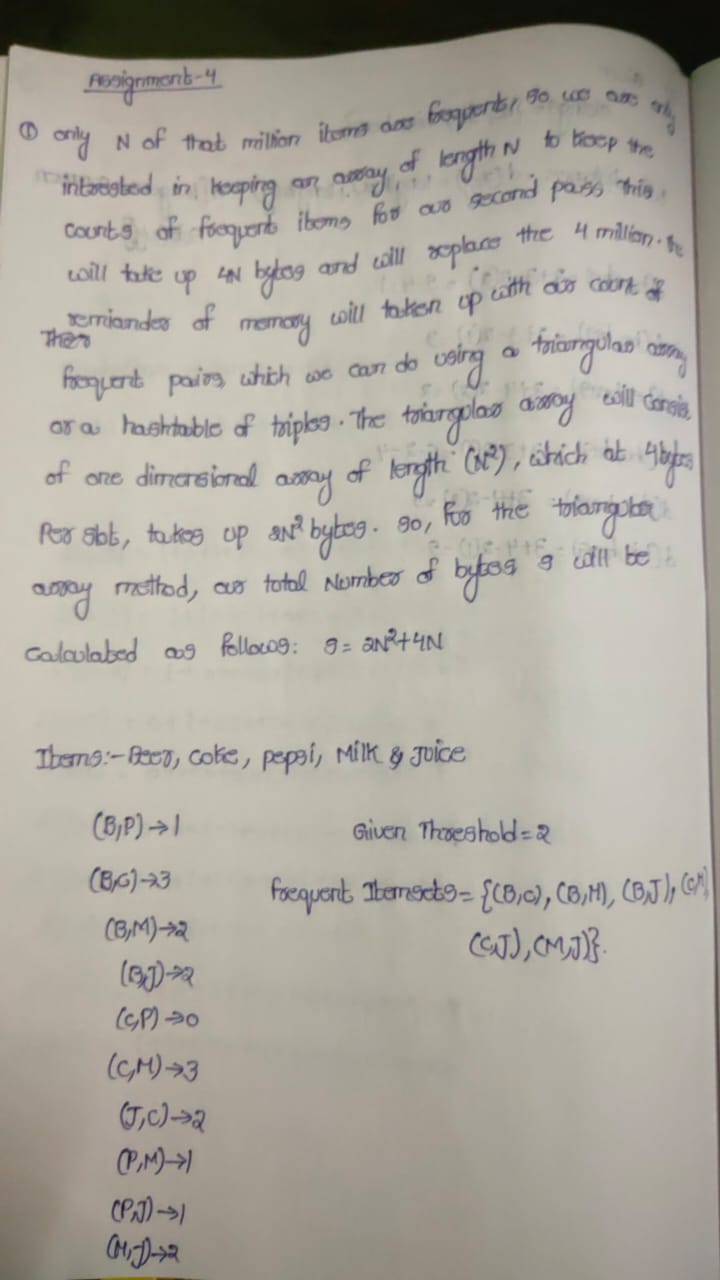 Assignment-4
① only N of that million items are frequent, so we are only
interested in keeping an array of length N to keep the
counts of frequent items for our second pass this
will take up 4N bytes and will replace the 4 million. the
remiander of memory will taken up with our count of
Ther
frequent pairs, which we can do using a triangular array
or a hashtable of triples. The triangular array will consis
of one dimensional array of length (N²), which at 4 bytes
Per slot, takes up 2N² bytes. so, for the triangular
array method, our total Number of bytes s will be
calculated as follows: s = 2N²+4N
Items:- Beer, coke, pepsi, Milk & Juice
(B,P)→1 Given Threshold=2
(B,C)→3 frequent Itemsets = {(B,C), (B,M), (B,J), (C,M)
(B,M)→2 (C,J), (M,J)}.
(B,J)→2
(C,P)→0
(C,M)→3
(J,C)→2
(P,M)→1
(P,J)→1
(M,J)→2